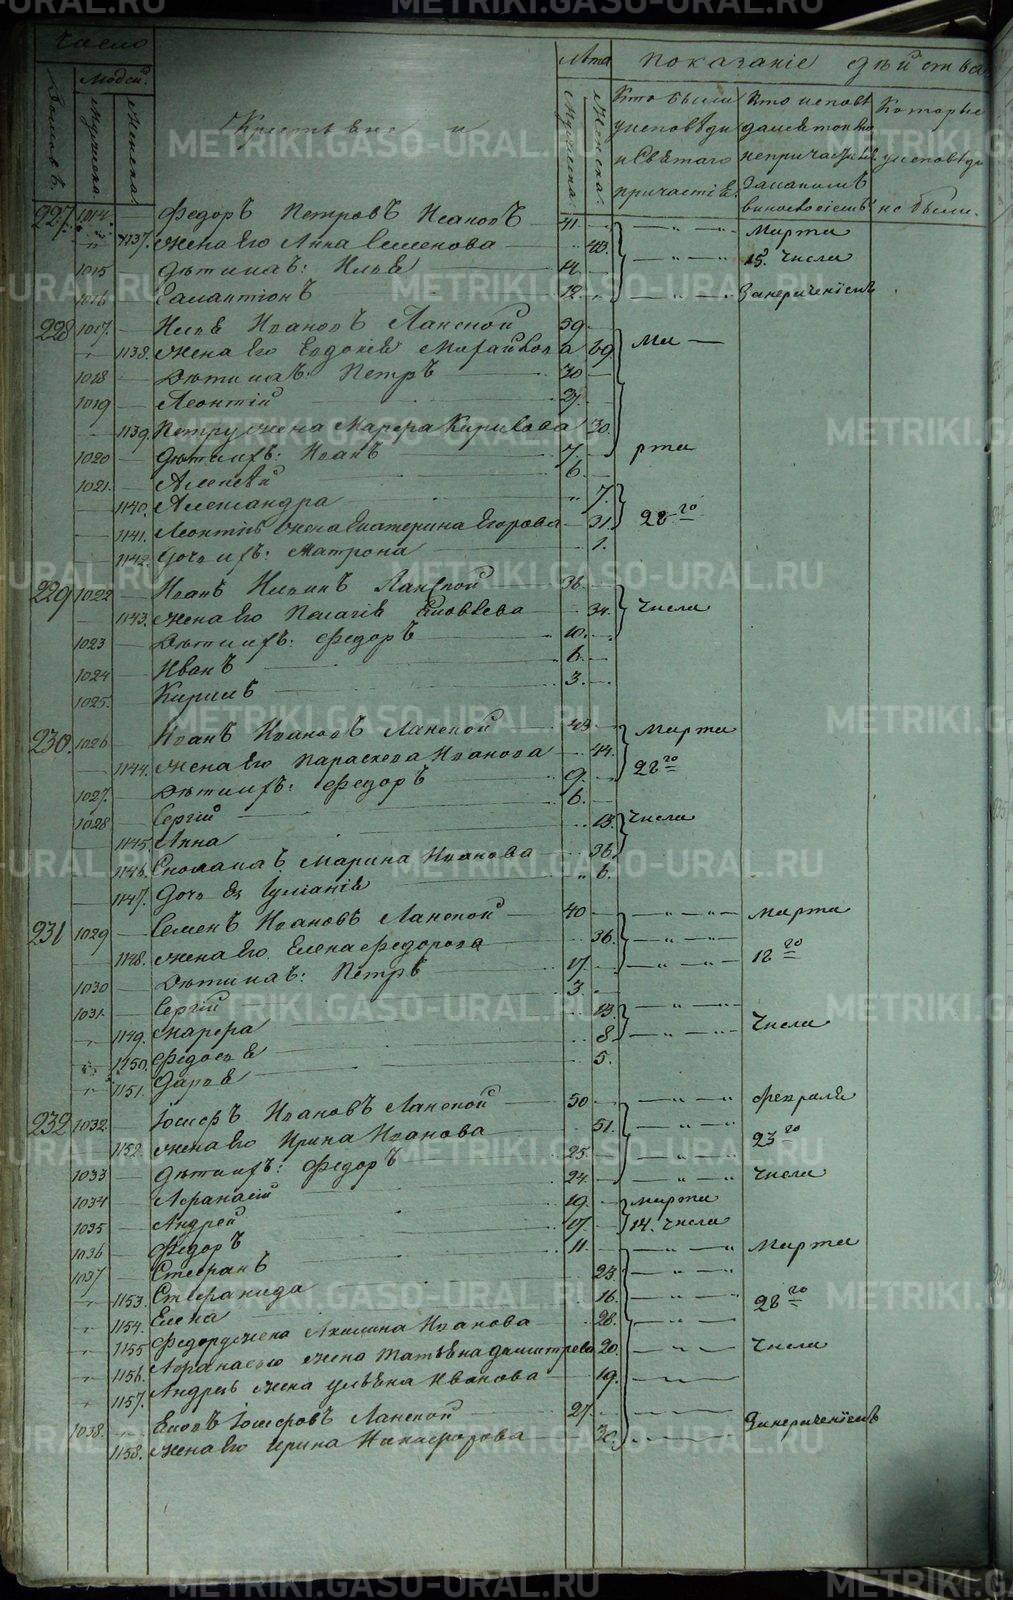 Число
Людей.
Домовъ.
Мужеска.
Женска.
Крестьяне и
Лѣта
Мужеска.
Женска.
Показаніе дѣйства
Кто были у исповѣди и Святаго причастія.
Кто исповѣдался токмо, а не причастил. За какимъ виносвоѵіемъ
Которые у исповѣди не были.
227. 1014. Федоръ Петровъ Исаковъ 41.
1137. жена Его Анна Семенова 43. Марта
1015 дѣти ихъ: Илья 14. 15. Числа
1016 Галактіонъ 12. За нерачениемъ
228 1017. Илья Ивановъ Ланской 59.
1138. жена Его Евдокія 59 Ма
1018 Дѣти ихъ: Петръ 30
1019 Леонтій
1139. Петру жена Марфа Кирилова 30.
1020 дѣти ихъ: Иванъ 7. рта
1021. Алексѣй 6.
1140. Александра 7.
1141. Леонтія жена Екатерина Егорова 31. 28го
1142. Дочь ихъ: Матрона 1.
229 1022 Иванъ Ильинъ Ланской 36.
1143. жена Его Пелагія Яковлева 34. Числа
1023 Дѣти ихъ: Федоръ 10.
1024 Иванъ 6.
1025. Кирилъ 3.
230. 1026. Иванъ Ивановъ Ланской 43 Марта
1144. жена Его Параскева Иванова 44. 28го
1027. Дѣти ихъ: Федоръ 9.
1028 Сергій 6.
1145. Анна 13. Числа
1146. Сноха ихъ Марина Иванова 36.
1147. Дочь Ея Іуліанія 6.
231 1029 Семенъ Ивановъ Ланской 40 Марта
1148. жена Его Елена Федорова 36. 18го
1030 Дѣти ихъ: Петръ 17.
1031. Сергій 3.
1149. Марфа 13. Числа
1150. Федосья 8.
1151. Дарья 5.
232 1032. Іосифъ Ивановъ Ланской 50 Февраля
1152. жена Его Ирина Иванова 51. 23го
1033 Дѣти ихъ: Федоръ 25.
1034 Афанасій 24. Числа
1035 Андрей 19. Марта
1036 Федоръ 17. 14. Числа
1037 Стефанъ 11. Марта
1153. Стефанида 23.
1154. Елена 16. 28го
1155 Федору жена Акилина Иванова 28.
1156. Афанасью жена Татьяна Димитрева 20. Числа
1157. Андрея жена Ульяна Иванова 19.
1038. Яковъ Іосифовъ Ланской 27. За нерачениемъ
1158. жена Его Ирина Никифорова 30.
METRIKI.GASO-URAL.RU